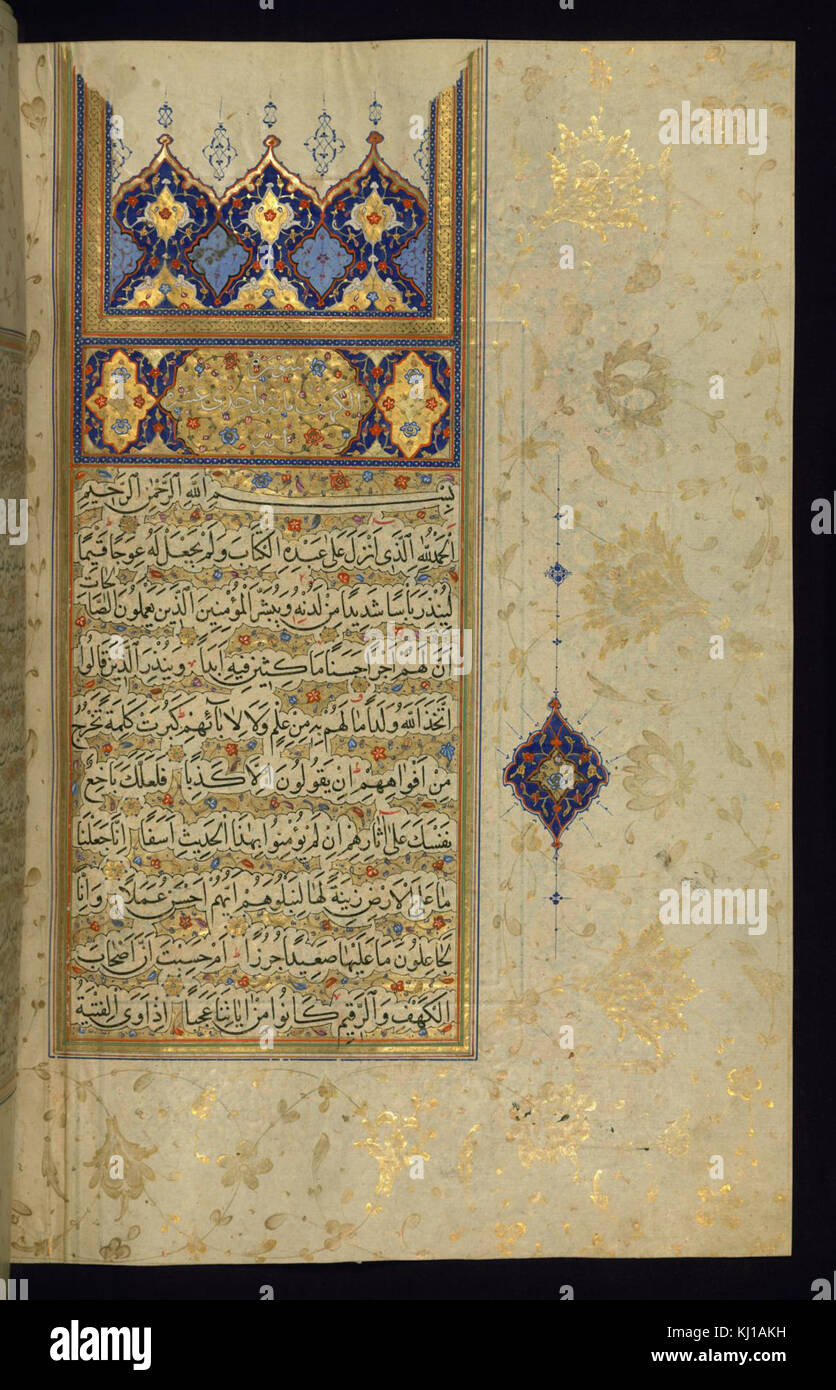 سورة
بسم الله الرحمن الرحيم
الحمد لله الذي أنزل على عبده الكتاب ولم يجعل له عوجا قيما
لينذر بأسا شديدا من لدنه ويبشر المؤمنين الذين يعملون الصالحات
أن لهم أجرا حسنا ماكثين فيه أبدا وينذر الذين قالوا
اتخذ الله ولدا ما لهم به من علم ولا لآبائهم كبرت كلمة تخرج
من أفواههم إن يقولون إلا كذبا فلعلك باخع
نفسك على آثارهم إن لم يؤمنوا بهذا الحديث أسفا إنا جعلنا
ما على الأرض زينة لها لنبلوهم أيهم أحسن عملا وإنا
لجاعلون ما عليها صعيدا جرزا أم حسبت أن أصحاب
الكهف والرقيم كانوا من آياتنا عجبا إذ أوى الفتية
alamy
Image ID: KJ1AKH
www.alamy.com